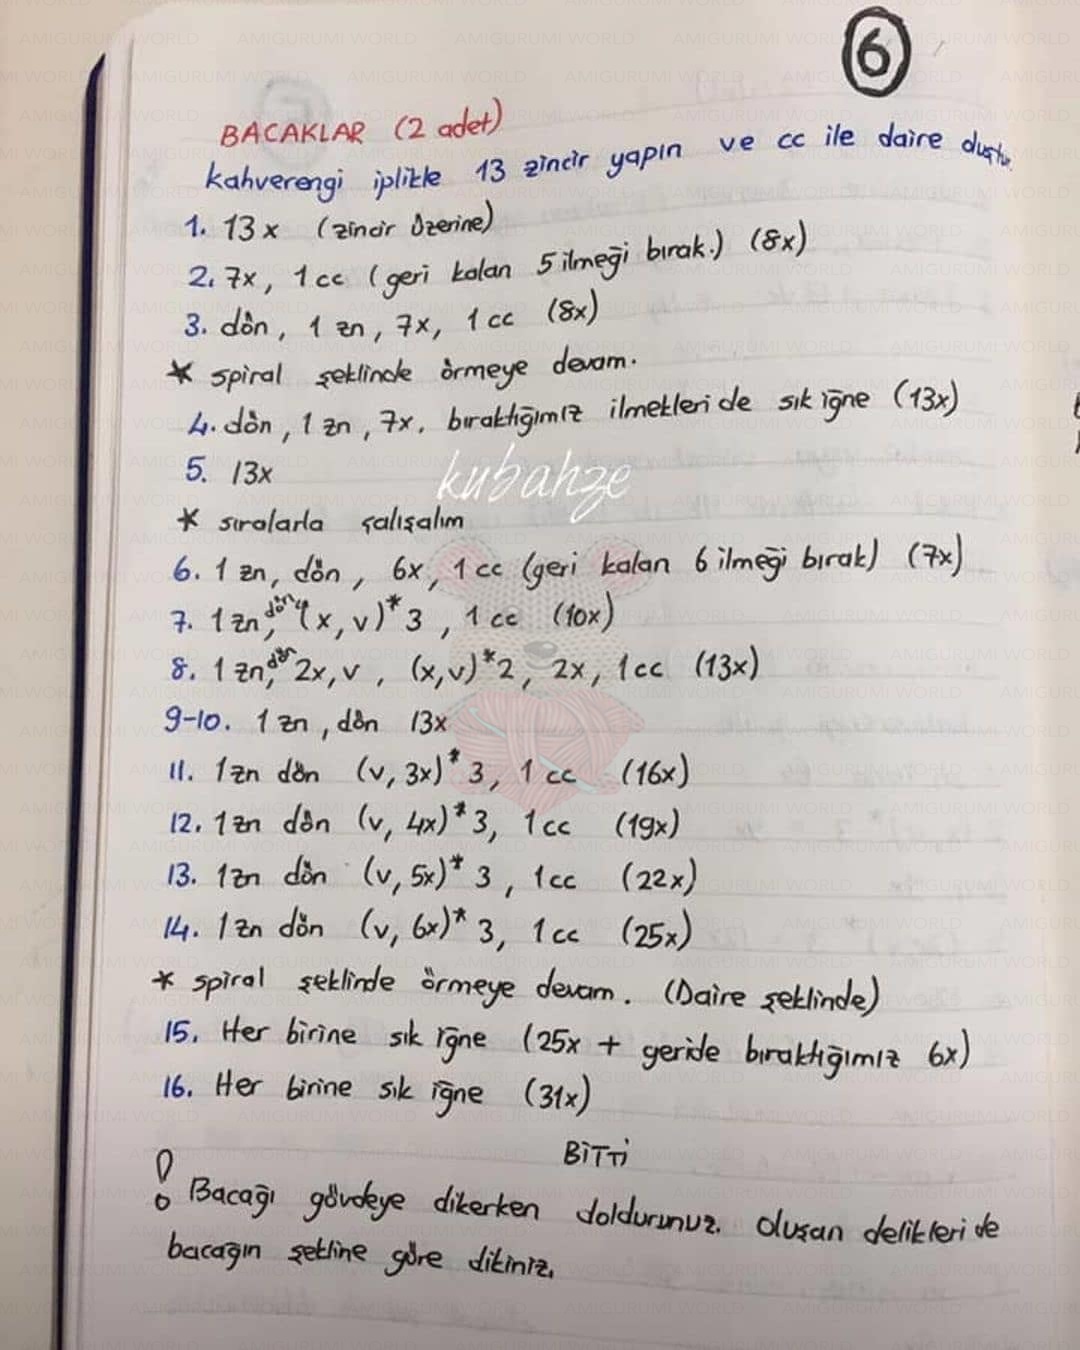 6
BACAKLAR (2 adet)
kahverengi iplikle 13 zincir yapın ve cc ile daire oluştur.
1. 13x (zincir üzerine)
2. 7x, 1cc (geri kalan 5 ilmeği bırak.) (8x)
3. dön, 1 zn, 7x, 1cc (8x)
* spiral şeklinde örmeye devam.
4. dön, 1 zn, 7x, bıraktığımız ilmekleri de sık iğne (13x)
5. 13x
kubahze
* sıralarla çalışalım
6. 1 zn, dön, 6x, 1cc (geri kalan 6 ilmeği bırak) (7x)
7. 1zn, dön, (x, v)*3, 1cc (10x)
8. 1zn, dön 2x, v, (x,v)*2, 2x, 1cc (13x)
9-10. 1zn, dön 13x
11. 1zn dön (v, 3x)*3, 1cc (16x)
12. 1zn dön (v, 4x)*3, 1cc (19x)
13. 1zn dön (v, 5x)*3, 1cc (22x)
14. 1zn dön (v, 6x)*3, 1cc (25x)
* spiral şeklinde örmeye devam. (Daire şeklinde)
15. Her birine sık iğne (25x + geride bıraktığımız 6x)
16. Her birine sık iğne (31x)
BİTTİ
! Bacağı gövdeye dikerken doldurunuz. Oluşan delikleri de
bacağın şekline göre dikiniz.
AMIGURUMI WORLD